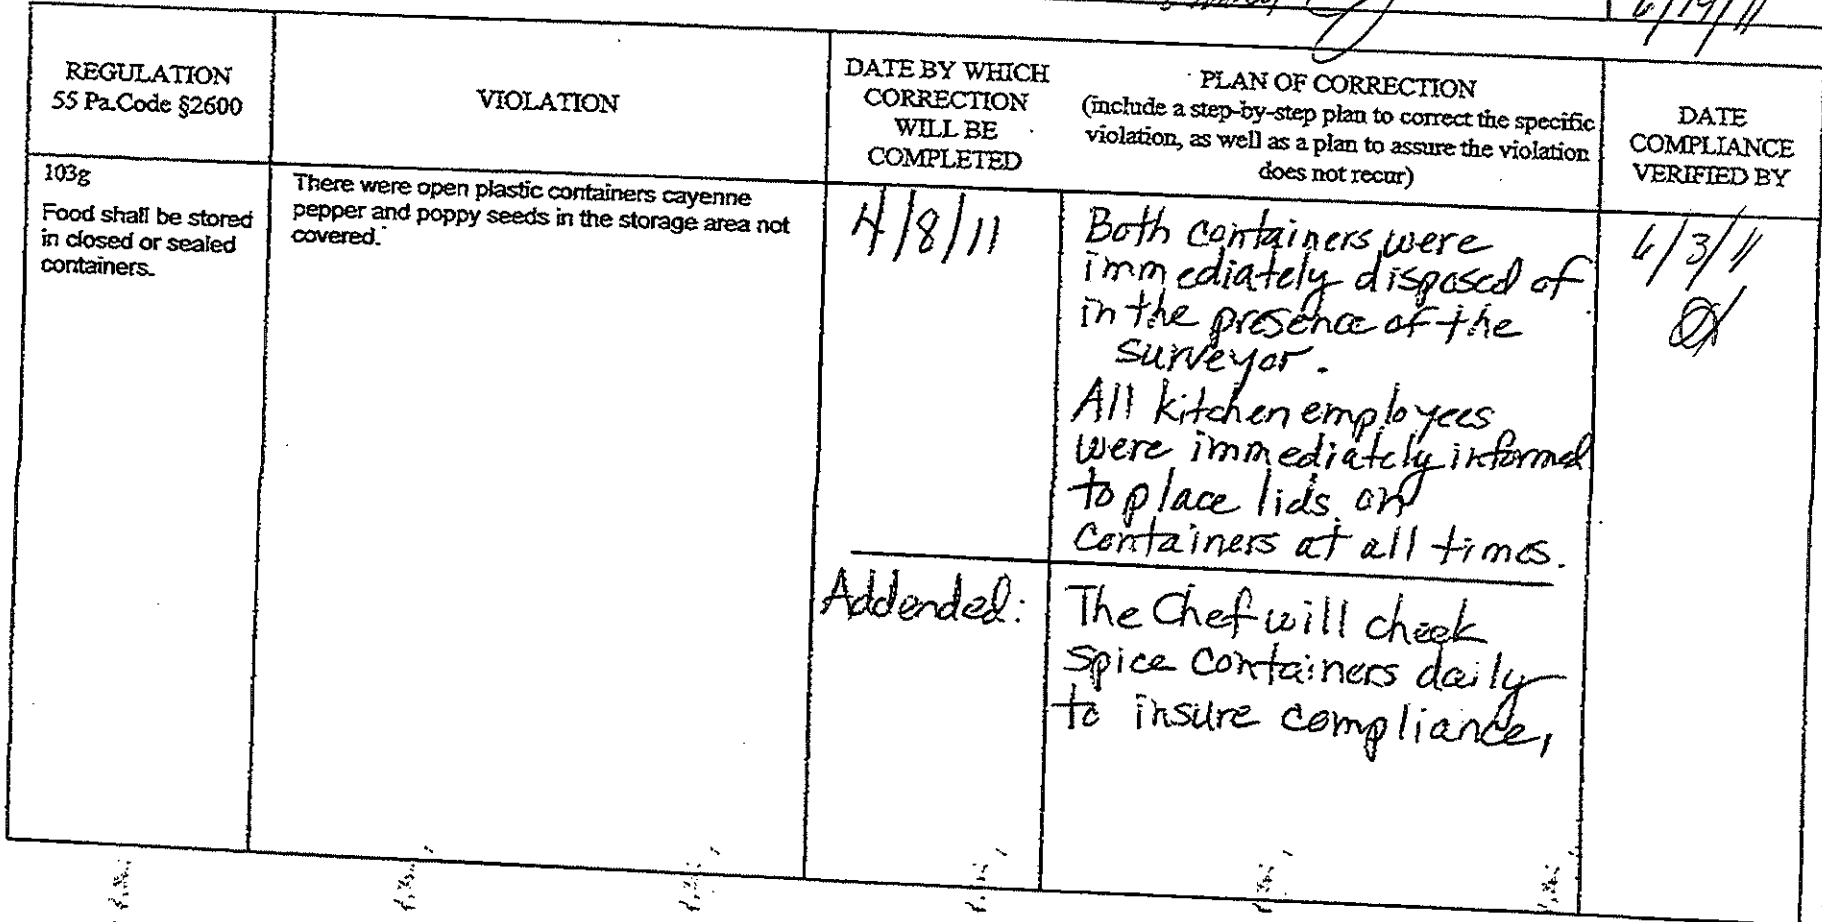 6/19/11
REGULATION
55 Pa.Code §2600
VIOLATION
DATE BY WHICH
CORRECTION
WILL BE
COMPLETED
PLAN OF CORRECTION
(include a step-by-step plan to correct the specific
violation, as well as a plan to assure the violation
does not recur)
DATE
COMPLIANCE
VERIFIED BY
103g
Food shall be stored
in closed or sealed
containers.
There were open plastic containers cayenne
pepper and poppy seeds in the storage area not
covered.
4/8/11
Both containers were
immediately disposed of
in the presence of the
surveyor.
All kitchen employees
were immediately informed
to place lids on
containers at all times.
Addended:
The Chef will check
spice containers daily
to insure compliance,
6/3/11